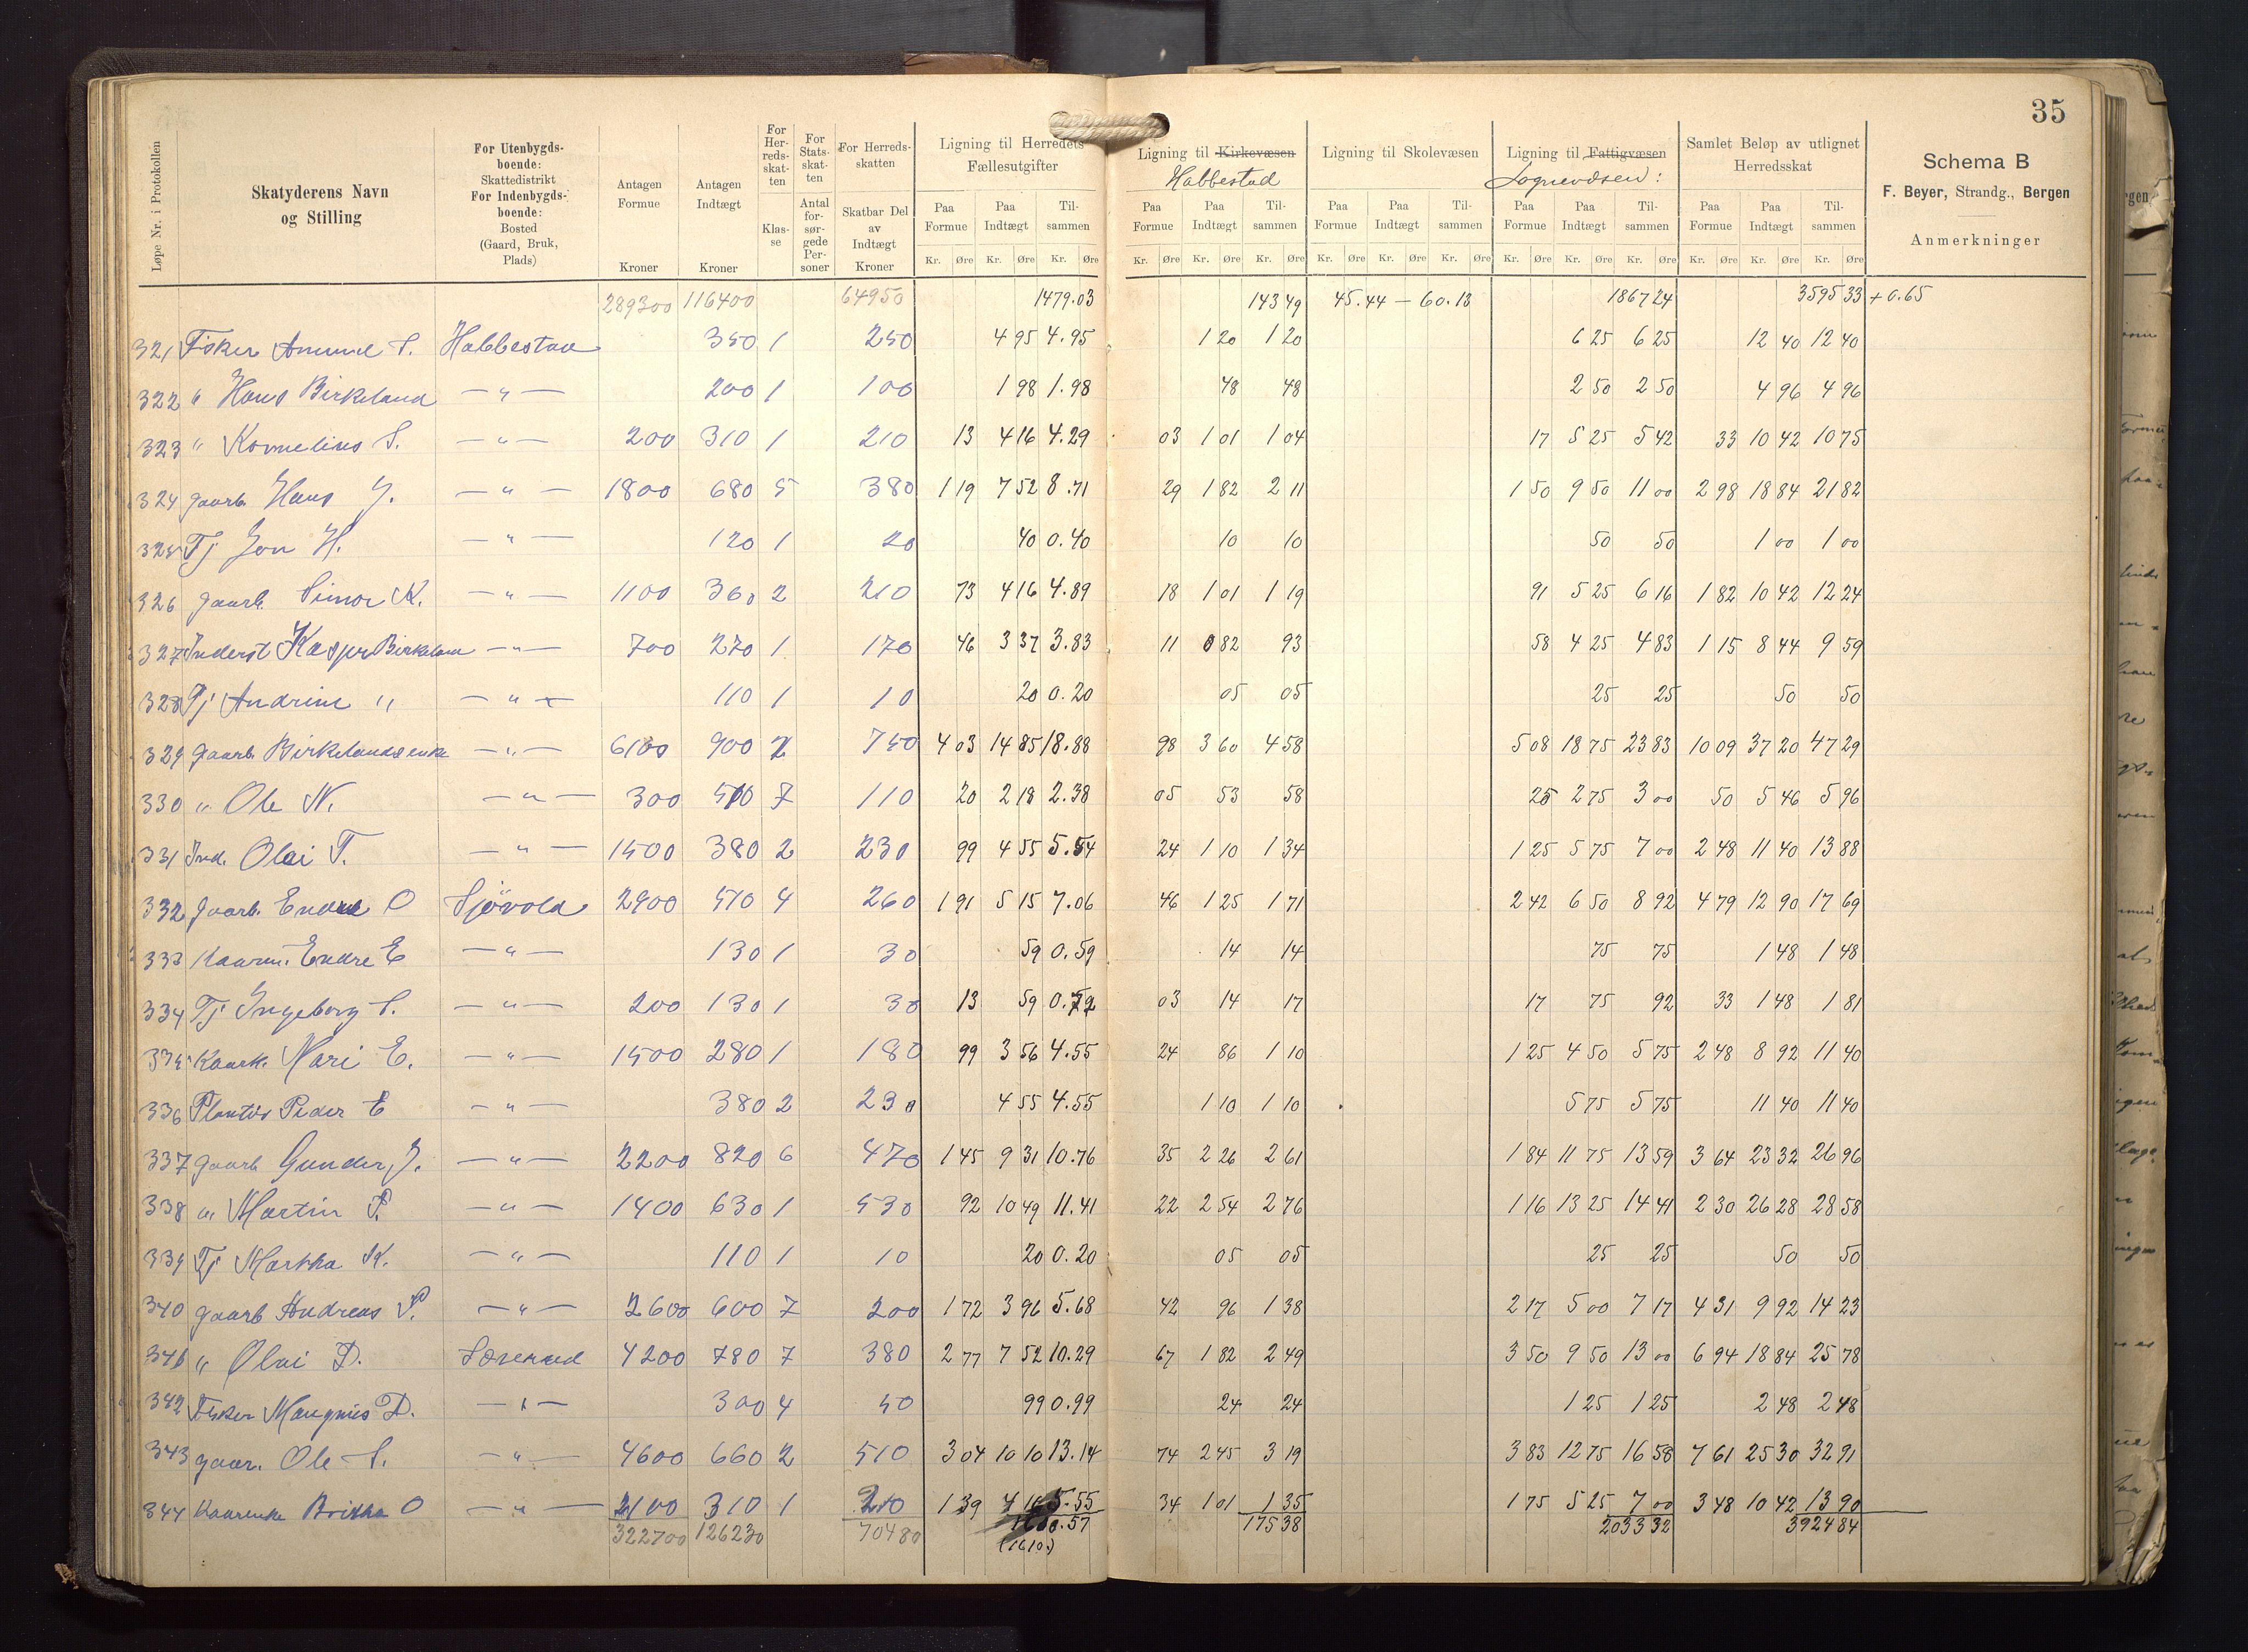 35
Løpe Nr. i Protokollen
Skatyderens Navn og Stilling
For Utenbygds-boende: Skattedistrikt For Indenbygds-boende: Bosted (Gaard, Bruk, Plads)
Antagen Formue Kroner
Antagen Indtægt Kroner
For Herreds-skat-ten Klas-se
For Stats-skat-ten Antal for-sør-gede Per-soner
For Herreds-skatten Skatbar Del av Indtægt Kroner
Ligning til Herredets Fællesutgifter
Ligning til Kirkevæsen Habbestad
Ligning til Skolevæsen
Ligning til Fattigvæsen Sognevæsen:
Samlet Beløp av utlignet Herredsskat
Schema B
F. Beyer, Strandg., Bergen
Anmerkninger
Paa Formue Paa Indtægt Til-sammen Paa Formue Paa Indtægt Til-sammen Paa Formue Paa Indtægt Til-sammen Paa Formue Paa Indtægt Til-sammen Paa Formue Paa Indtægt Til-sammen
Kr. Øre Kr. Øre Kr. Øre Kr. Øre Kr. Øre Kr. Øre Kr. Øre Kr. Øre Kr. Øre Kr. Øre Kr. Øre Kr. Øre Kr. Øre Kr. Øre Kr. Øre
289300 116400 64950 1479.03 143 49 45.44 — 60.13 1867 24 3595 33 + 0.65
321 Fisker S. Habbestad 350 1 250 4 95 4.95 1 20 1 20 6 25 6 25 12 40 12 40
322 " Hans Birkeland — " — 200 1 100 1 98 1.98 48 48 2 50 2 50 4 96 4 96
323 " Kornelius S. — " — 200 310 1 210 13 4 16 4.29 03 1 01 1 04 17 5 25 5 42 33 10 42 10 75
324 gaarb. Hans J. — " — 1800 680 5 380 1 19 7 52 8.71 29 1 82 2 11 1 50 9 50 11 00 2 98 18 84 21 82
325 Tj Jon H. — " — 120 1 20 40 0.40 10 10 50 50 1 00 1 00
326 gaarb. Simon K. — " — 1100 360 2 210 73 4 16 4.89 18 1 01 1 19 91 5 25 6 16 1 82 10 42 12 24
327 Inderst Kasper Birkeland — " — 700 270 1 170 46 3 37 3.83 11 0 82 93 58 4 25 4 83 1 15 8 44 9 59
328 Tj Andrine " — " — 110 1 10 20 0.20 05 05 25 25 50 50
329 gaarb. Birkelandsenke — " — 6100 900 2 750 4 03 14 85 18.88 98 3 60 4 58 5 08 18 75 23 83 10 09 37 20 47 29
330 " Ole N. — " — 300 510 7 110 20 2 18 2.38 05 53 58 25 2 75 3 00 50 5 46 5 96
331 Ind. Olai T. — " — 1500 380 2 230 99 4 55 5.54 24 1 10 1 34 1 25 5 75 7 00 2 48 11 40 13 88
332 gaarb. Endre O Sjøvold 2900 510 4 260 1 91 5 15 7.06 46 1 25 1 71 2 42 6 50 8 92 4 79 12 90 17 69
333 Kaarm. Endre E — " — 130 1 30 59 0.59 14 14 75 75 1 48 1 48
334 Tj Ingeborg S. — " — 200 130 1 30 13 59 0.72 03 14 17 17 75 92 33 1 48 1 81
335 Kaark. Mari E. — " — 1500 280 1 180 99 3 56 4.55 24 86 1 10 1 25 4 50 5 75 2 48 8 92 11 40
336 Peder E — " — 380 2 230 4 55 4.55 1 10 1 10 5 75 5 75 11 40 11 40
337 gaarb Gunder J. — " — 2200 820 6 470 1 45 9 31 10.76 35 2 26 2 61 1 84 11 75 13 59 3 64 23 32 26 96
338 " Martin P. — " — 1400 630 1 530 92 10 49 11.41 22 2 54 2 76 1 16 13 25 14 41 2 30 26 28 28 58
339 Tj Martha K. — " — 110 1 10 20 0.20 05 05 25 25 50 50
340 gaarb Andreas P. — " — 2600 600 7 200 1 72 3 96 5.68 42 96 1 38 2 17 5 00 7 17 4 31 9 92 14 23
341 " Olai D. 4200 780 7 380 2 77 7 52 10.29 67 1 82 2 49 3 50 9 50 13 00 6 94 18 84 25 78
342 Fisker Mangnus D. — " — 300 4 50 99 0.99 24 24 1 25 1 25 2 48 2 48
343 gaar. Ole S. — " — 4600 660 2 510 3 04 10 10 13.14 74 2 45 3 19 3 83 12 75 16 58 7 61 25 30 32 91
344 Kaarenke Britha O — " — 2100 310 1 210 1 39 4 16 5.55 34 1 01 1 35 1 75 5 25 7 00 3 48 10 42 13 90
322700 126230 70480 .57 175 38 2033 32 3924 84
(1610.)